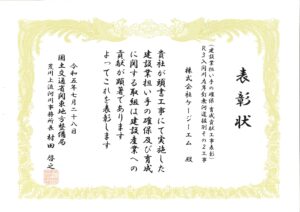 表彰状
(建設業担い手の確保・育成貢献工事表彰)
R3入間川左岸釘無河道掘削その2工事
株式会社ケージーエム 殿
貴社が頭書工事にて実施した
建設業担い手の確保及び育成
に関する取組は建設産業への
貢献が顕著であります
よってこれを表彰します
令和五年七月二十八日
国土交通省関東地方整備局
荒川上流河川事務所長 村田 啓之